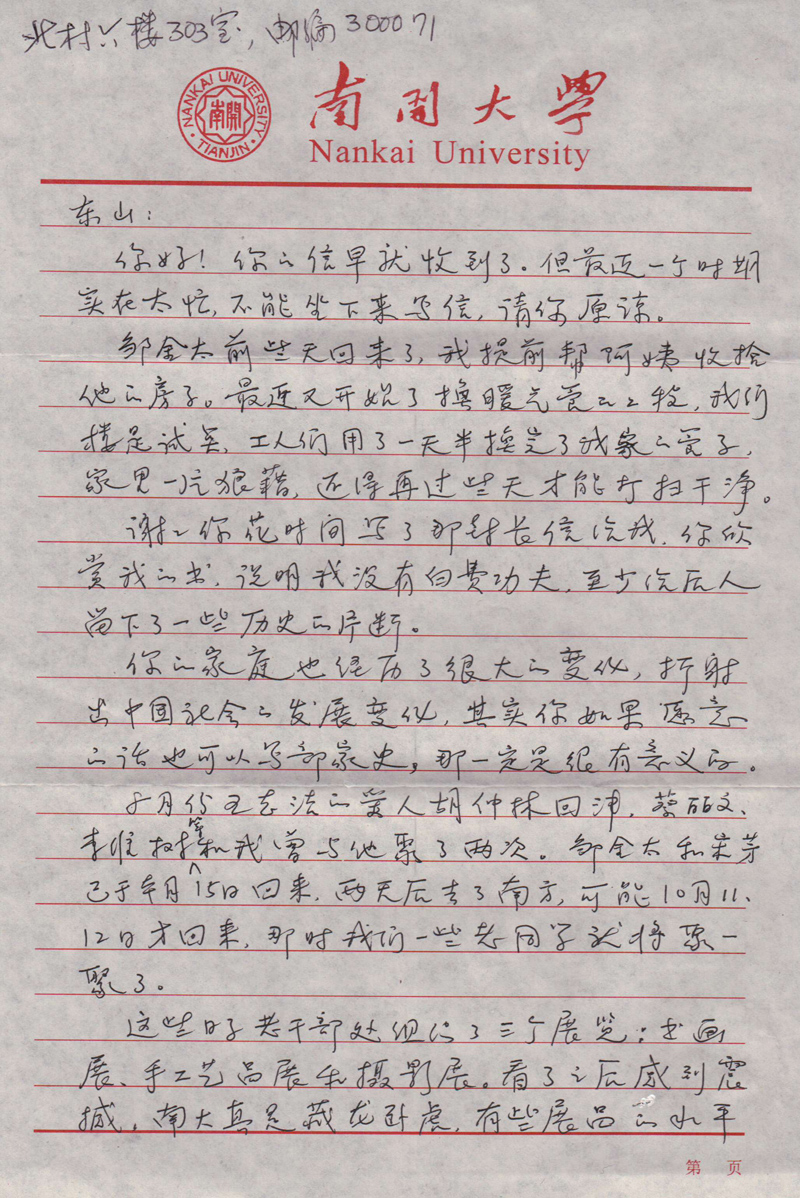 北村六楼303室，邮编300071
NANKAI UNIVERSITY
南開
TIANJIN
南開大學
Nankai University
东山：
你好！你的信早就收到了。但最近一个时期
实在太忙，不能坐下来写信，请你原谅。
邹金太前些天回来了，我提前帮阿姨收拾
他的房子。最近又开始了换暖气管的工程，我们
楼是试点，工人们用了一天半换完了我家的管子，
家里一片狼藉，还得再过些天才能打扫干净。
谢谢你花时间写了那封长信给我，你欣
赏我的书，说明我没有白费功夫，至少给后人
留下了一些历史的片断。
你的家庭也经历了很大的变化，折射
出中国社会的发展变化，其实你如果愿意
的话也可以写部家史，那一定是很有意义的。
8月份王志法的爱人胡仲林回津，蔡丽文、
李维等和我曾与他聚了两次。邹金太和宋芽
已于本月15日回来，两天后去了南方，可能10月11、
12日才回来，那时我们一些老同学就将聚一
聚了。
这些日子老干部处组织了三个展览：书画
展、手工艺品展和摄影展。看了之后感到震
撼，南大真是藏龙卧虎，有些展品的水平
第 页